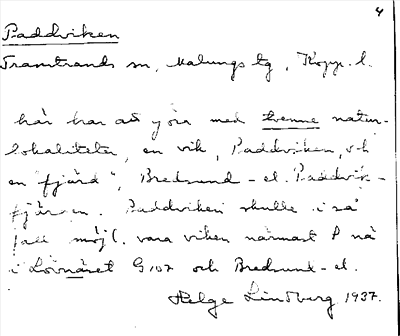 4
Paddviken
Transtrands sn, Malungs tg, Kopp. l.
här har att göra med tvenne natur-
lokaliteter, en vik, Paddviken, och
en "fjärd", Bredsund- el. Paddvik-
fjärden. Paddviken skulle i så
fall möjl. vara viken närmast P nå
i Lövnäset G107 och Bredsund- el.
Helge Lindberg 1937.